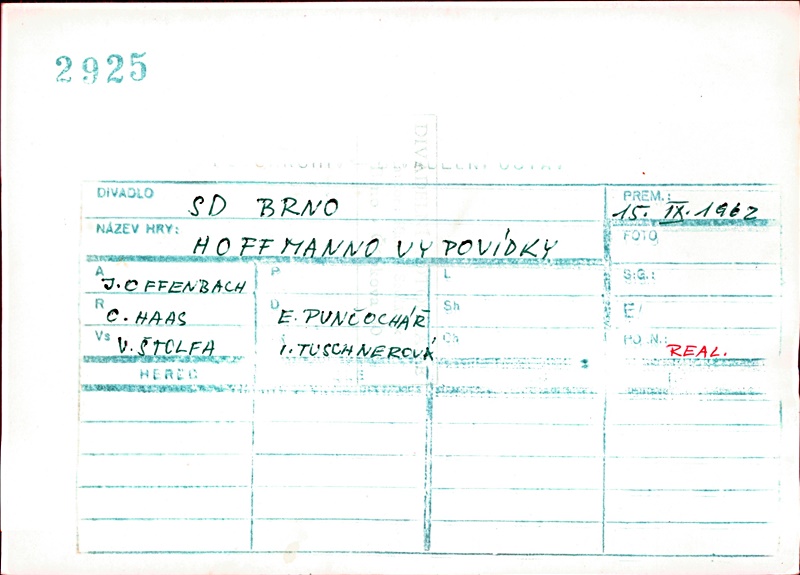 2925
DIVADLO SD BRNO PREM.: 15. IX. 1962
NÁZEV HRY: HOFFMANNOVY POVÍDKY FOTO
A J. OFFENBACH P L SIG.:
R O. HAAS D E. PUNČOCHÁŘ Sh
Vs V. ŠTOLFA I. TUSCHNEROVÁ Ch REAL.
HEREC